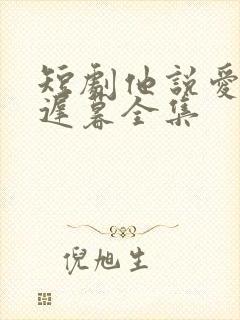 短劇他說愛
遲暮全集
倪旭生